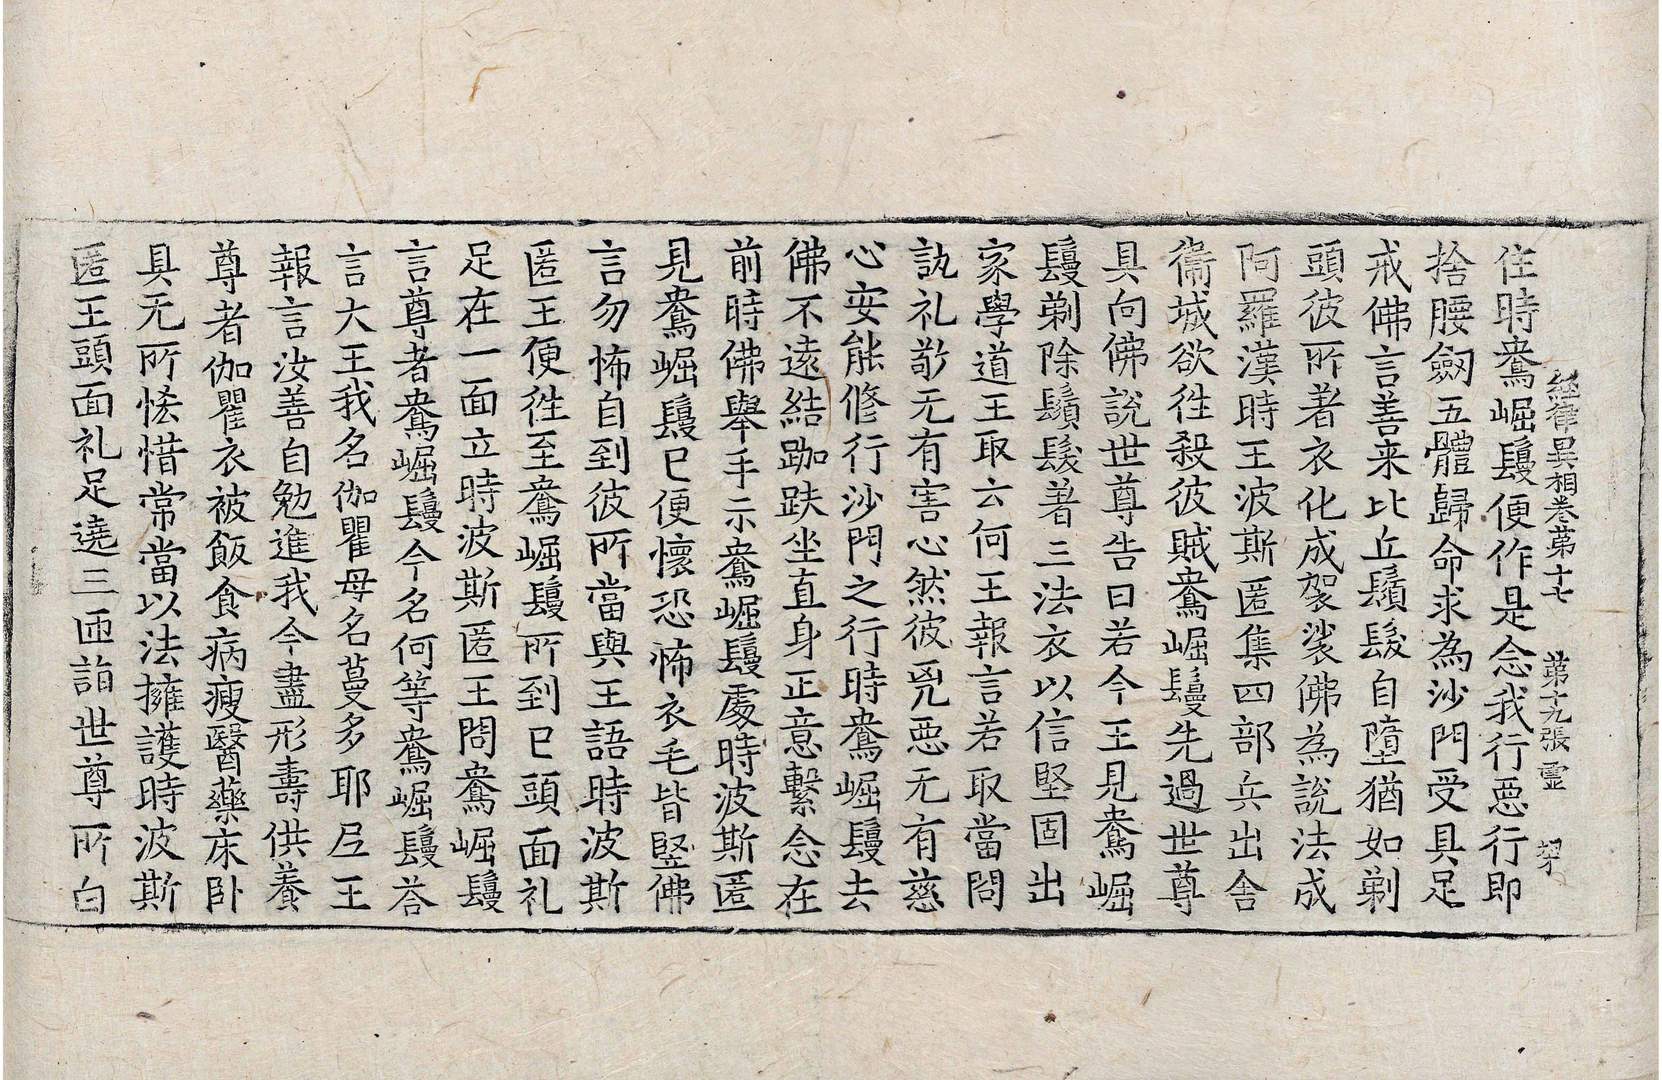 経律異相巻苐十七 苐十九張 霊
住時鴦崛鬘便作是念我行惡行即
捨腰劔五體歸命求為沙門受具足
戒佛言善来比丘鬚髮自墮猶如剃
頭彼所著衣化成袈裟佛為說法成
阿羅漢時王波斯匿集四部兵出舍
衛城欲徃殺彼賊鴦崛鬘先過世尊
具向佛說世尊告曰若今王見鴦崛
鬘剃除鬚髮著三法衣以信堅固出
家學道王取云何王報言若取當問
訊礼敬无有害心然彼兇惡无有慈
心安能修行沙門之行時鴦崛鬘去
佛不遠結跏趺坐直身正意繫念在
前時佛舉手示鴦崛鬘處時波斯匿
見鴦崛鬘已便懷恐怖衣毛皆竪佛
言勿怖自到彼所當與王語時波斯
匿王便徃至鴦崛鬘所到已頭面礼
足在一面立時波斯匿王問鴦崛鬘
言尊者鴦崛鬘今名何等鴦崛鬘荅
言大王我名伽瞿母名蔓多耶尼王
報言汝善自勉進我今盡形壽供養
尊者伽瞿衣被飯食病瘦醫藥床卧
具无所悋惜常當以法擁護時波斯
匿王頭面礼足遶三匝詣世尊所白